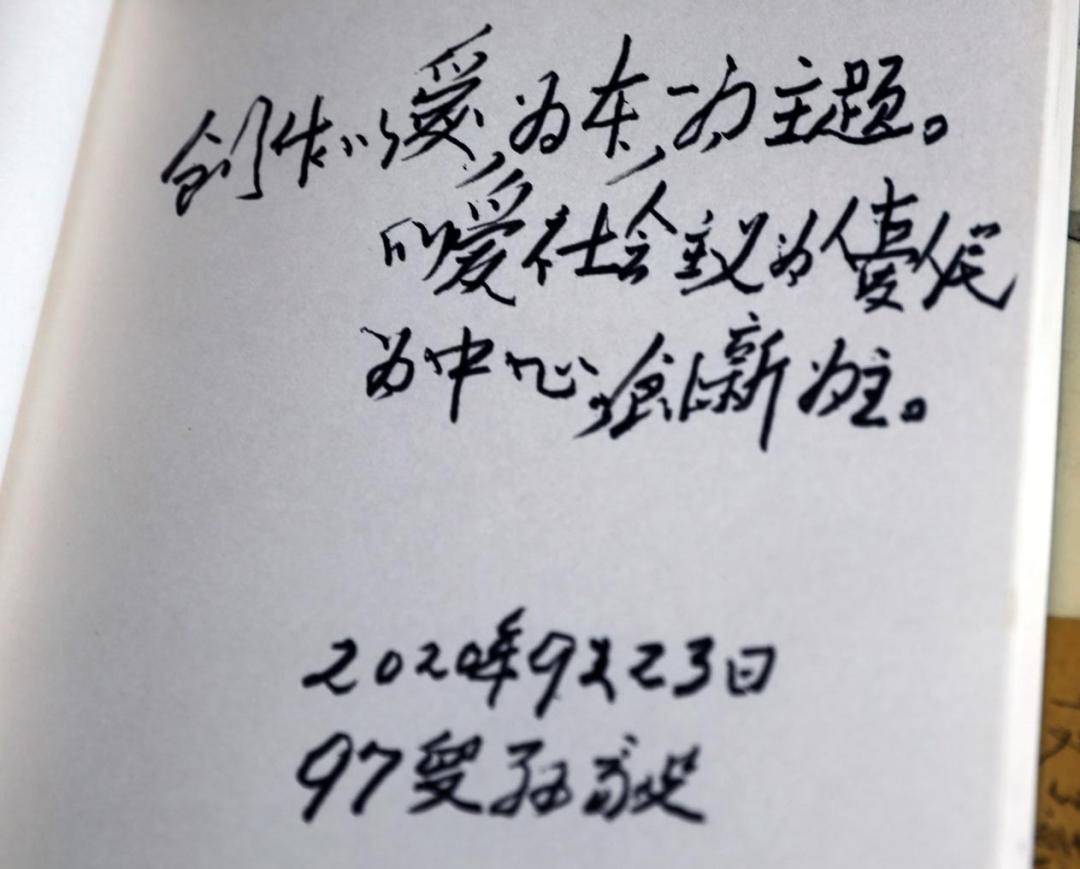 创作以愛为本,为主题。
以爱社会主义为人民
为中心,创新为主。
2020年9月23日
97叟孙毅